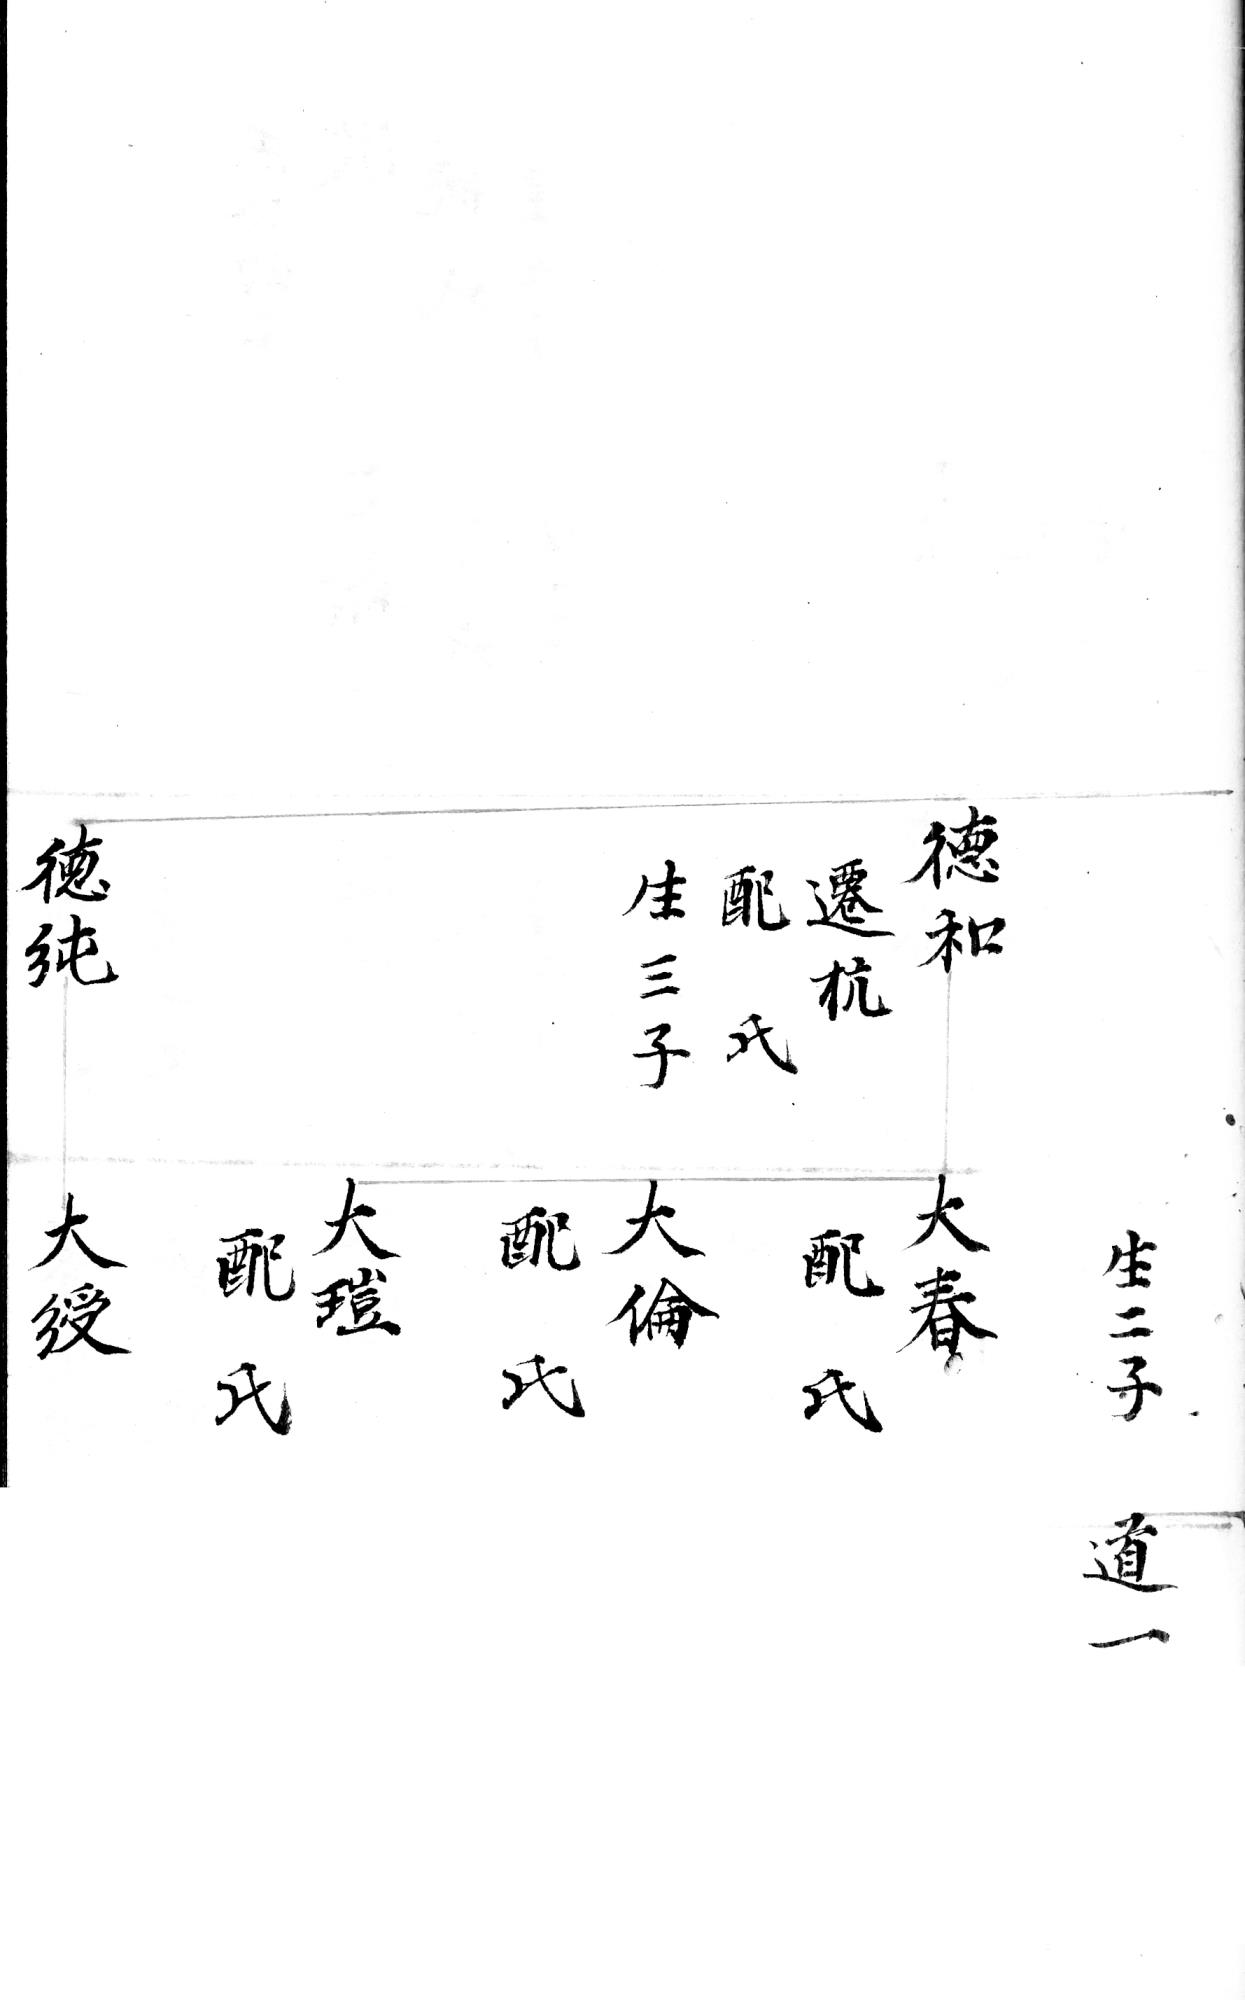 生二子
道一
德和
遷杭
配 氏
生三子
大春
配 氏
大倫
配 氏
大瑄
配 氏
德純
大綬